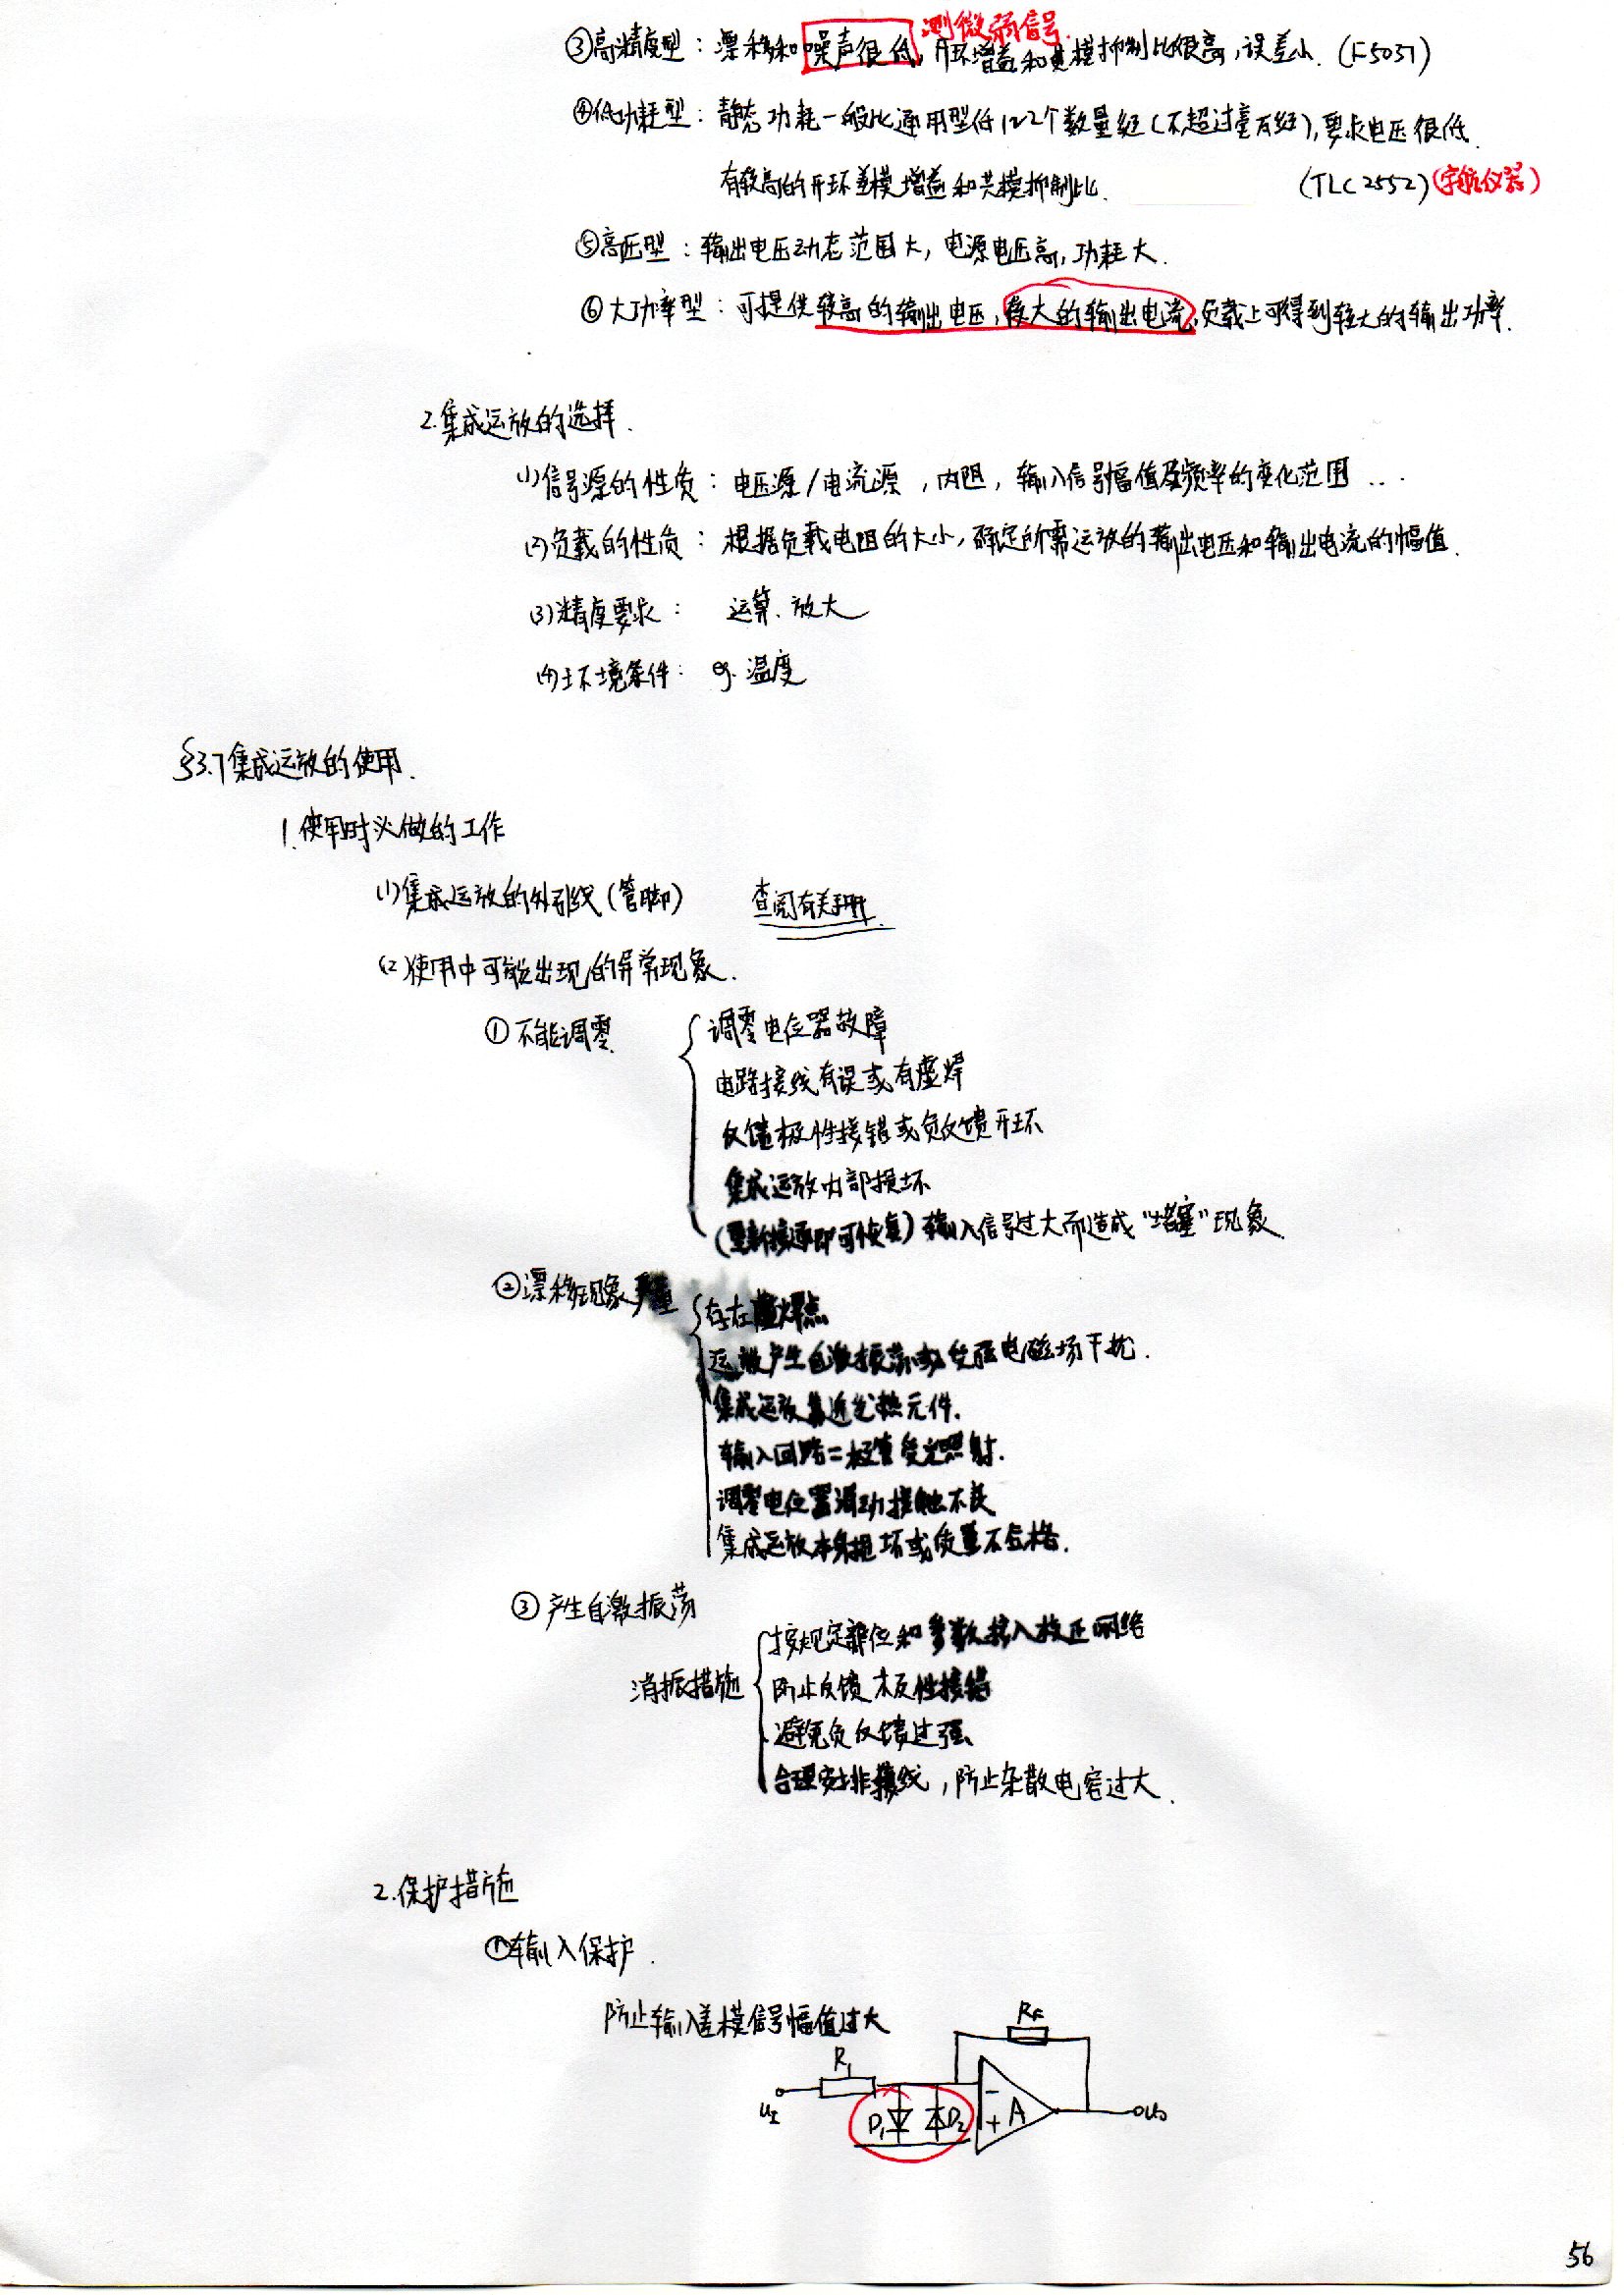 测微弱信号
③高精度型：漂移和噪声很低，开环增益和共模抑制比很高，误差小．(F5037)
④低功耗型：静态功耗一般比通用型低1~2个数量级(不超过毫瓦级)，要求电压很低．
有较高的开环差模增益和共模抑制比． (TLC2552)(宇航仪器)
⑤高压型：输出电压动态范围大，电源电压高，功耗大．
⑥大功率型：可提供较高的输出电压，较大的输出电流，负载上可得到较大的输出功率．
2.集成运放的选择．
(1)信号源的性质：电压源/电流源，内阻，输入信号幅值及频率的变化范围...
(2)负载的性质：根据负载电阻的大小，确定所需运放的输出电压和输出电流的幅值．
(3)精度要求： 运算、放大
(4)环境条件：eg.温度
§3.7集成运放的使用．
1.使用时必做的工作
(1)集成运放的外引线(管脚) 查阅有关手册
(2)使用中可能出现的异常现象．
①不能调零
调零电位器故障
电路接线有误或有虚焊
反馈极性接错或负反馈开环
集成运放内部损坏
(重新接通即可恢复)输入信号过大而造成"堵塞"现象
②漂移现象严重
存在虚焊点
运放产生自激振荡或受强电磁场干扰．
集成运放靠近发热元件．
输入回路二极管受光照射．
调零电位器滑动接触不良
集成运放本身损坏或质量不合格．
③产生自激振荡
消振措施
按规定部位和参数接入校正网络
防止反馈极性接错
避免负反馈过强
合理安排接线，防止杂散电容过大．
2.保护措施
①输入保护．
防止输入差模信号幅值过大
RF
R1
uI
D1
D2
- + A
uo
56